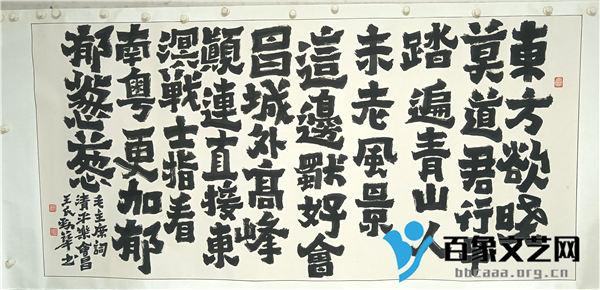 東方欲曉
莫道君行早
踏遍青山人
未老風景
這邊獨好會
昌城外高峰
顛連直接東
溟戰士指看
南粵更加郁
郁葱葱
毛主席詞
清平樂會昌
王氏 華书
百象文艺网
bbcaaa.org.cn